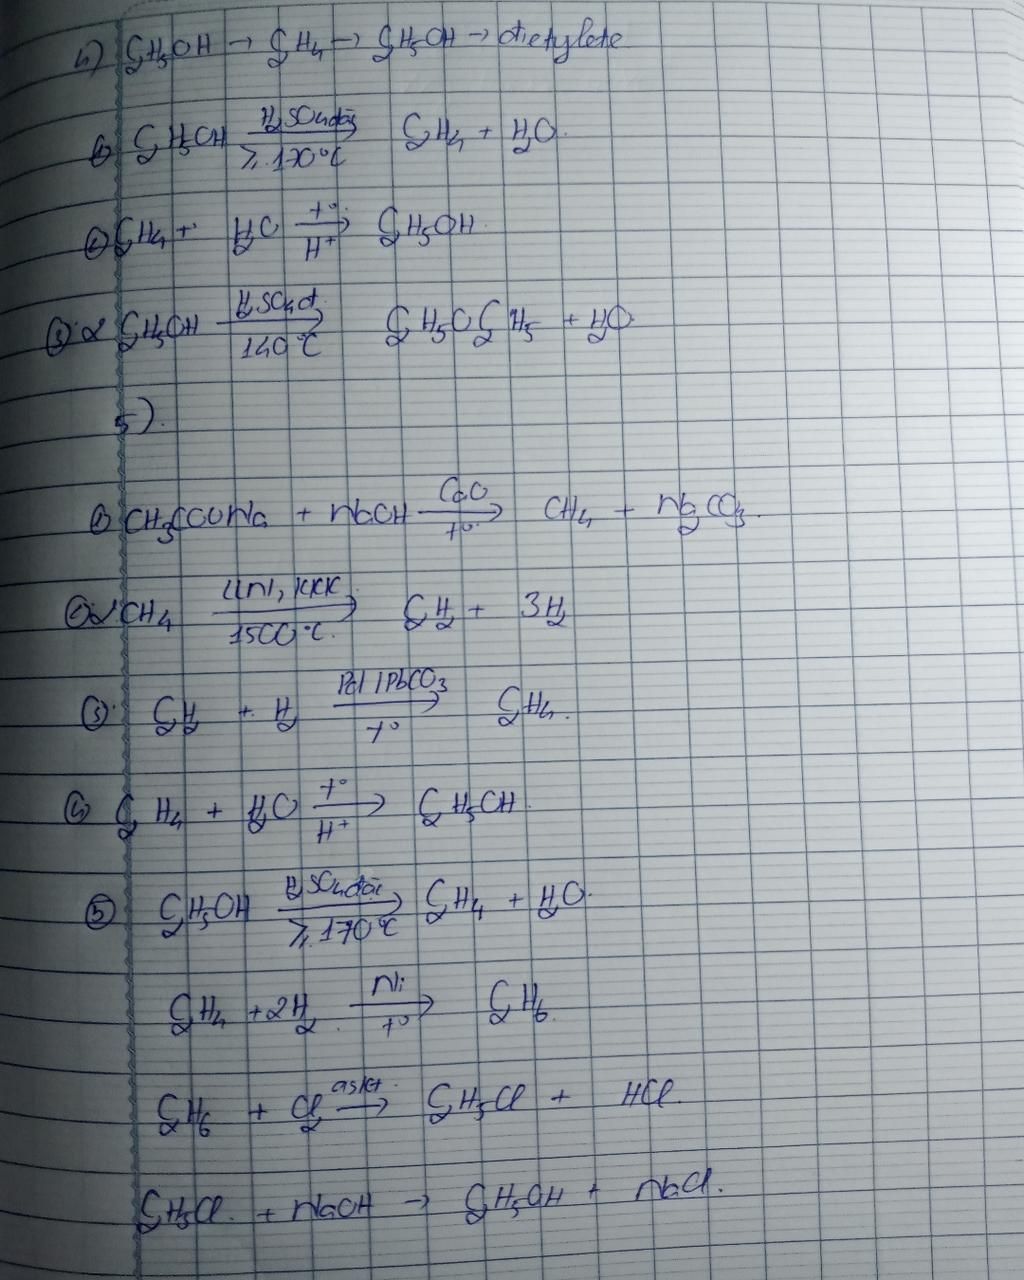 4) C2H5OH → C2H4 → C2H5OH → dietylete
① C2H5OH H2SO4đặc → ≥170°C C2H4 + H2O.
② C2H4 + H2O t° → H+ C2H5OH.
③ 2 C2H5OH H2SO4đ → 140°C C2H5OC2H5 + H2O
5).
① CH3COONa + NaOH CaO → t° CH4 + Na2CO3.
② 2CH4 LLN, KKK → 1500°C. C2H2 + 3H2
③ C2H2 + H2 Pd/PbCO3 → t° C2H4.
④ C2H4 + H2O t° → H+ C2H5OH.
⑤ C2H5OH H2SO4đặc → ≥170°C C2H4 + H2O.
C2H4 + 2H2 Ni → t° C2H6.
C2H6 + Cl2 askt → C2H5Cl + HCl.
C2H5Cl. + NaOH → C2H5OH + NaCl.